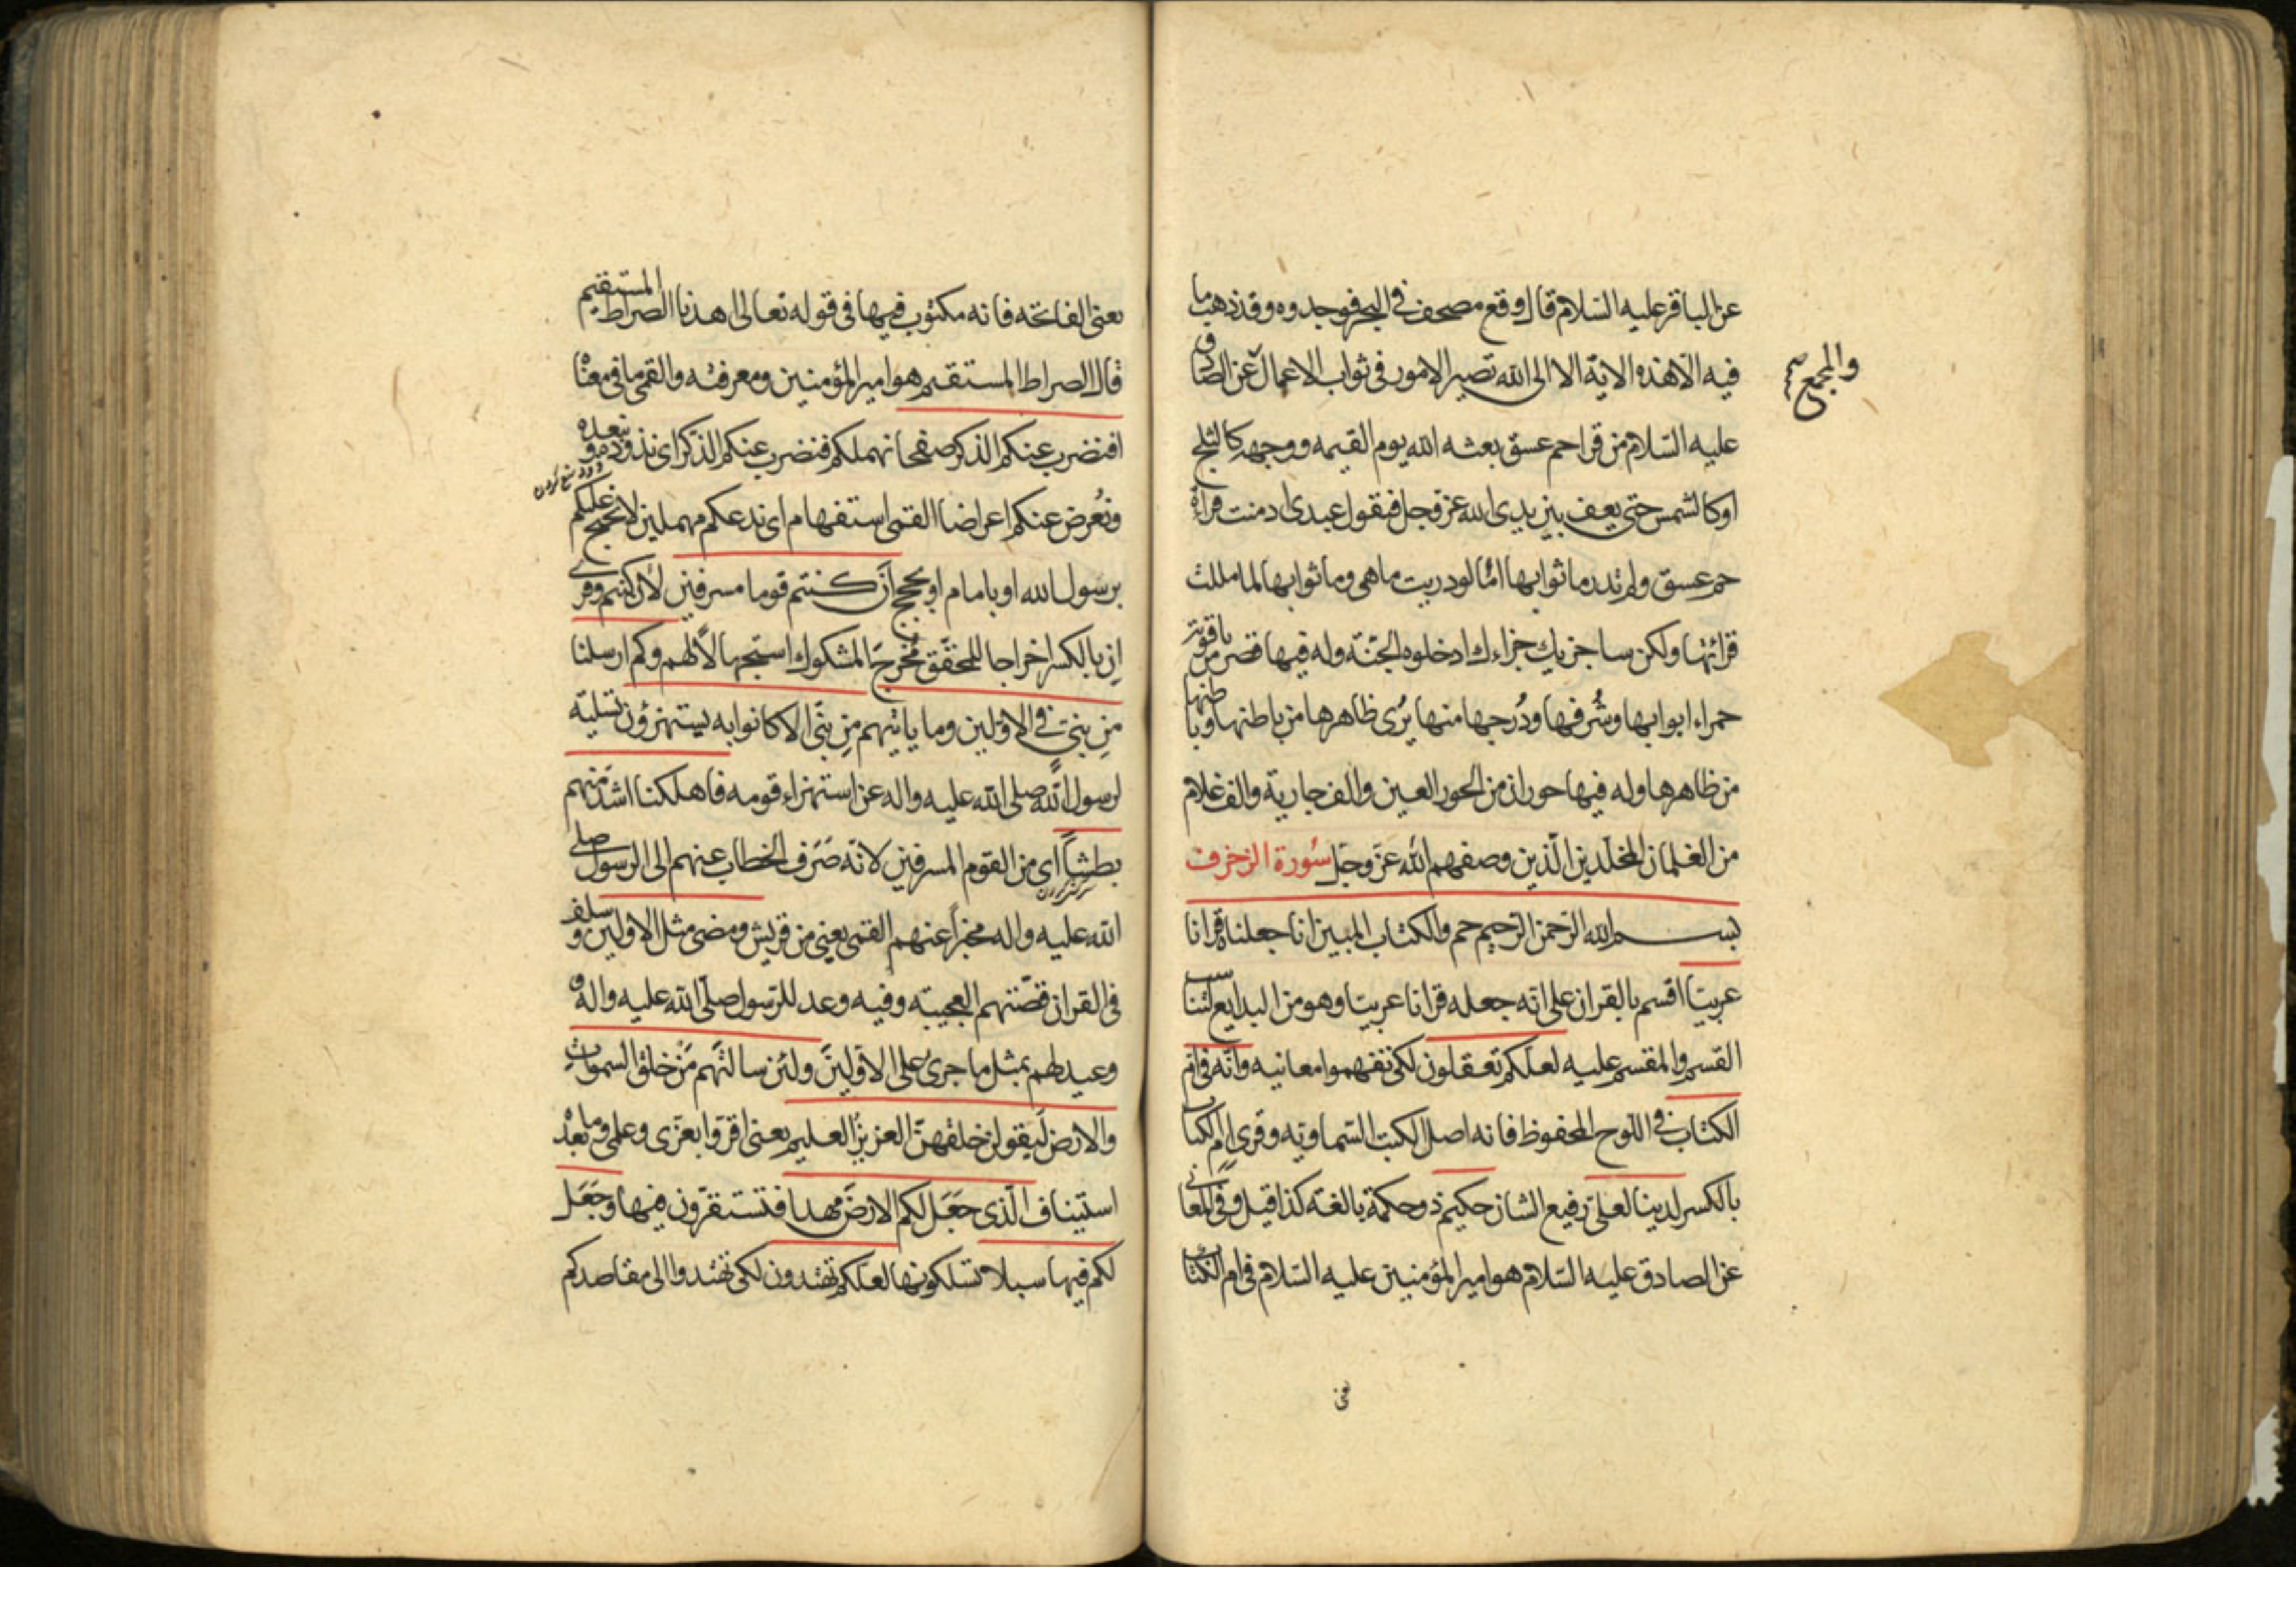 عن الباقر عليه السلام قال وقع مصحف في البحر فوجدوه وقد ذهب ما
فيه الا هذه الاية الا الى الله تصير الامور في ثواب الاعمال عن الصادق
والمجمع
عليه السلام من قرا حم عسق بعثه الله يوم القيمه ووجهه كالثلج
او كالشمس حتى يقف بين يدي الله عز وجل فيقول عبدي ادمنت قراءة
حم عسق ولم تدر ما ثوابها امّا لو دريت ما هي وما ثوابها لما مللت
قرائتها ولكن ساجزيك جزاءك ادخلوه الجنّة وله فيها قصر من ياقوتة
حمراء ابوابها وشُرفها ودُرجها منها يُرى ظاهرها من باطنها وباطنها
من ظاهرها وله فيها حوران من الحور العين والف جارية والف غلام
من الغلمان المخلّدين الّذين وصفهم الله عزّ وجلّ سورة الزخرف
بسم الله الرّحمن الرّحيم حم والكتاب المبين انا جعلناه قرانا
عربيّا اقسم بالقران على انّه جعله قرانا عربيّا وهو من البدايع لتناسب
القسم والمقسم عليه لعلّكم تعقلون لكي تفهموا معانيه وانّه في امّ
الكتاب في اللّوح المحفوظ فانه اصل الكتب السّماويّه وقرئ امّ الكتاب
بالكسر لدينا لعليّ رفيع الشان حكيم ذو حكمة بالغة كذا قيل وفي المعاني
عن الصادق عليه السّلام هو امير المؤمنين عليه السّلام في ام الكتاب
يعنى
يعنى الفاتحه فانه مكتوب فيها في قوله تعالى اهدنا الصراط المستقيم
قال الصراط المستقيم هو امير المؤمنين ومعرفته والقمى ما في معناه
افنضرب عنكم الذكر صفحا انهملكم فنضرب عنكم الذكر اى نذوده ونبعده
ونُعرض عنكم اعراضا القمى استفهام اى ندعكم مهملين لا نحتج عليكم
برسول الله او بامام او بحجج ان كنتم قوما مسرفين لأن كنتم وقرئ
ان بالكسر اخراجا للمحقّق مُخرج المشكوك استجهالاً لهم وكم ارسلنا
من نبيّ في الاوّلين وما ياتيهم من نبيّ الا كانوا به يستهزؤن تسلية
لرسول الله صلى الله عليه واله عن استهزاء قومه فاهلكنا اشدّ منهم
بطشاً اى من القوم المسرفين لانّه صَرَف الخطاب عنهم الى الرسول صلى
الله عليه واله مخبراً عنهم القمى يعنى من قريش ومضى مثل الاولين وسلف
في القران قصّتهم العجيبة وفيه وعد للرّسول صلّى الله عليه واله و
وعيد لهم بمثل ما جرى على الاوّلين ولئن سالتهم من خلق السموات
والارض ليقولنّ خلقهنّ العزيز العليم يعنى اقرّوا بعزّى وعلمى وما بعده
استيناف الّذى جعَل لكم الارضَ مهدا فتستقرّون فيها وجعَل
لكم فيها سبلا تسلكونها لعلّكم تهتدون لكى تهتدوا الى مقاصدكم